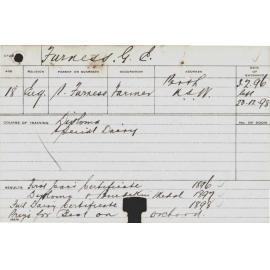 Furness, G. E.
AGE RELIGION PARENT OR GUARDIAN OCCUPATION ADDRESS DATE OF ENTRY
18 Eng. Furness Farmer N.S.W. 3.7.96
Left
20.12.98
COURSE OF TRAINING
Diploma
Special Dairy
RESULTS First year Certificate 1896
Diploma & Medal 1897
Full Dairy Certificate 1898
Prize for Best on Orchard.